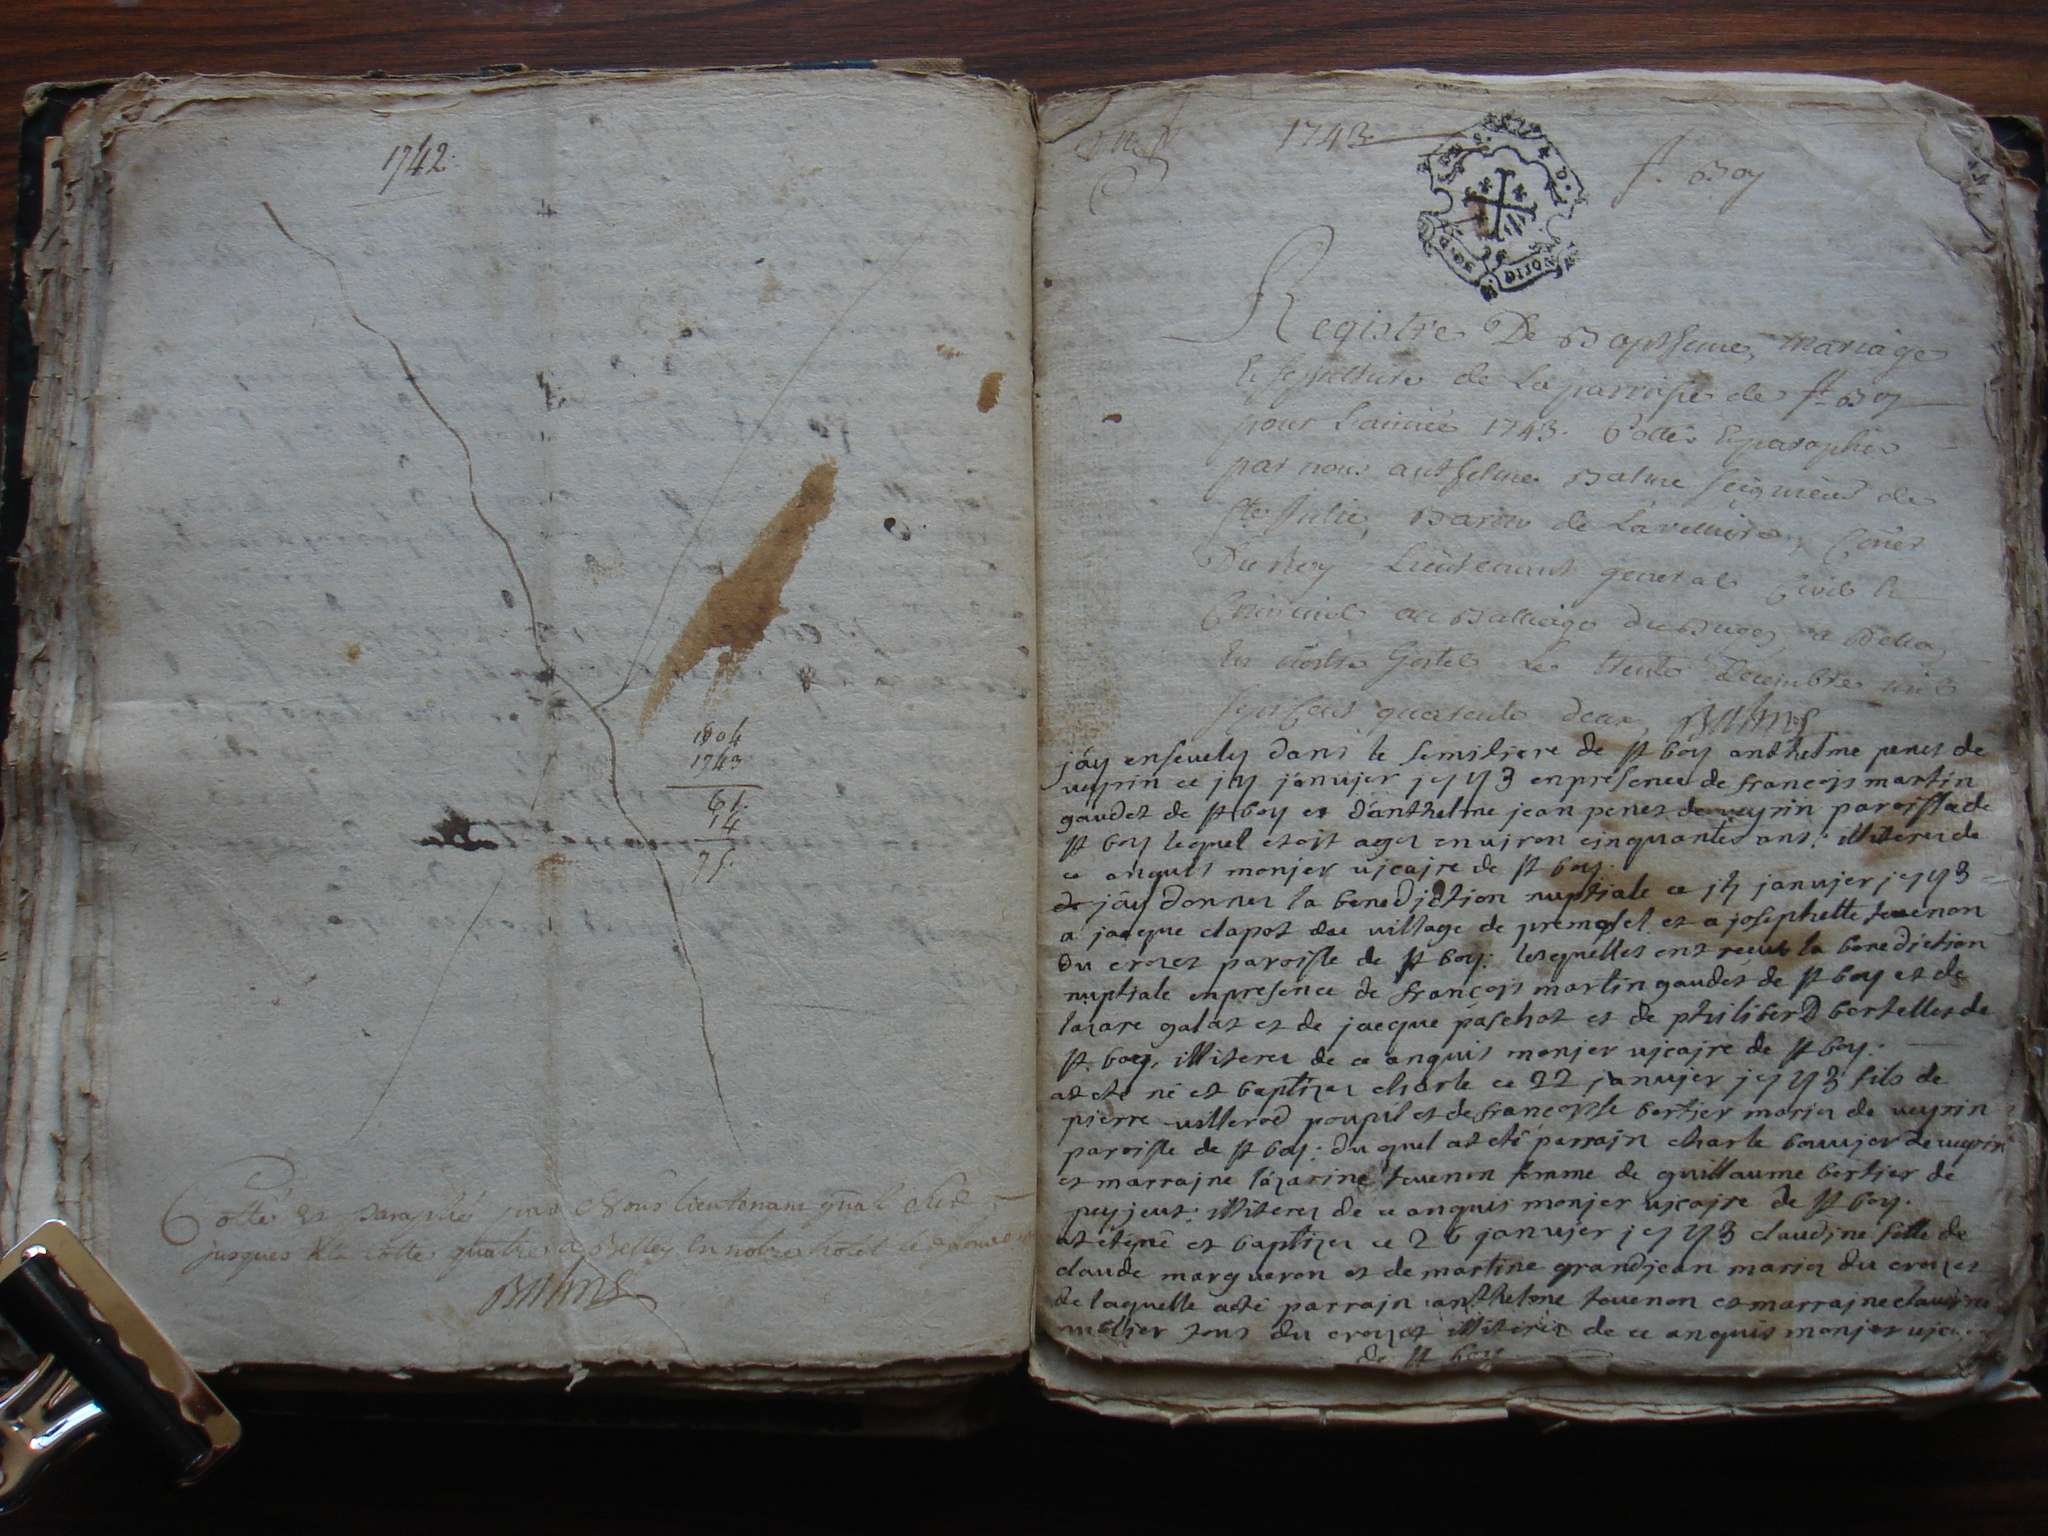 1742.
1804
1743
61.
14
75.
Cotté et paraphé par Nous lieutenant gnal Civil
jusques à la cotte quatre a Belley en notre hotel le
Balme
1743
st. Boy
Registre De Baptesme, mariage
Et sepulture de La parroisse de st Boy
pour L'année 1743. Cottés Et paraphés
par nous anthelme Balme seigneur de
ste Julie, Baron de Conser
Du Roy Lieutenant general Civil Et
Criminel au Balliage du Bugey a Belley
En nostre hostel Le trente Decembre mil
sept Cent quarente deux Balme
j'ay ensevely dans le semitiere de st boy anthelme penet de
veyrin ce janvjer jey43 en presence de francojs martin
gaudet de st boy et d'anthelme jean penet de veyrin paroisse de
st boy lequel etoit agez environ cinquantes ans: illiterez de
ce anquis monjer vjcajre de st boy.
de j'ay donnez la benedjction nuptiale ce janvjer jey43
a jacque clapot du village de premeysel et a josephette tevenon
du crozet paroisse de st boy: lesquelles ont receus la benedjction
nuptiale en presence de francojs martin gaudet de st boy et de
lazare galat et de jacque paschot et de philiberd bertellet de
st boy, illiterez de ce anquis monjer vjcajre de st boy.
at eté né et baptizez charle ce 22 janvjer jey43 fils de
pierre villerod poupil et de francojse bertjer mariez de veyrin
paroisse de st boy: du quel at eté parrajn charle bouvjer de veyrin
et marrajne lazarine tevenon femme de guillaume bertjer de
peyjeut: illiterez de ce anquis monjer vjcajre de st boy.
at eté né et baptizez ce 26 janvjer jey43 claudjne fille de
claude margueron et de martine grandjean mariez du crozet
de laquelle a eté parrajn anthelme tevenon et marrajne claudjne
tous du crozet illiterez de ce anquis monjer vjcajre
de st boy